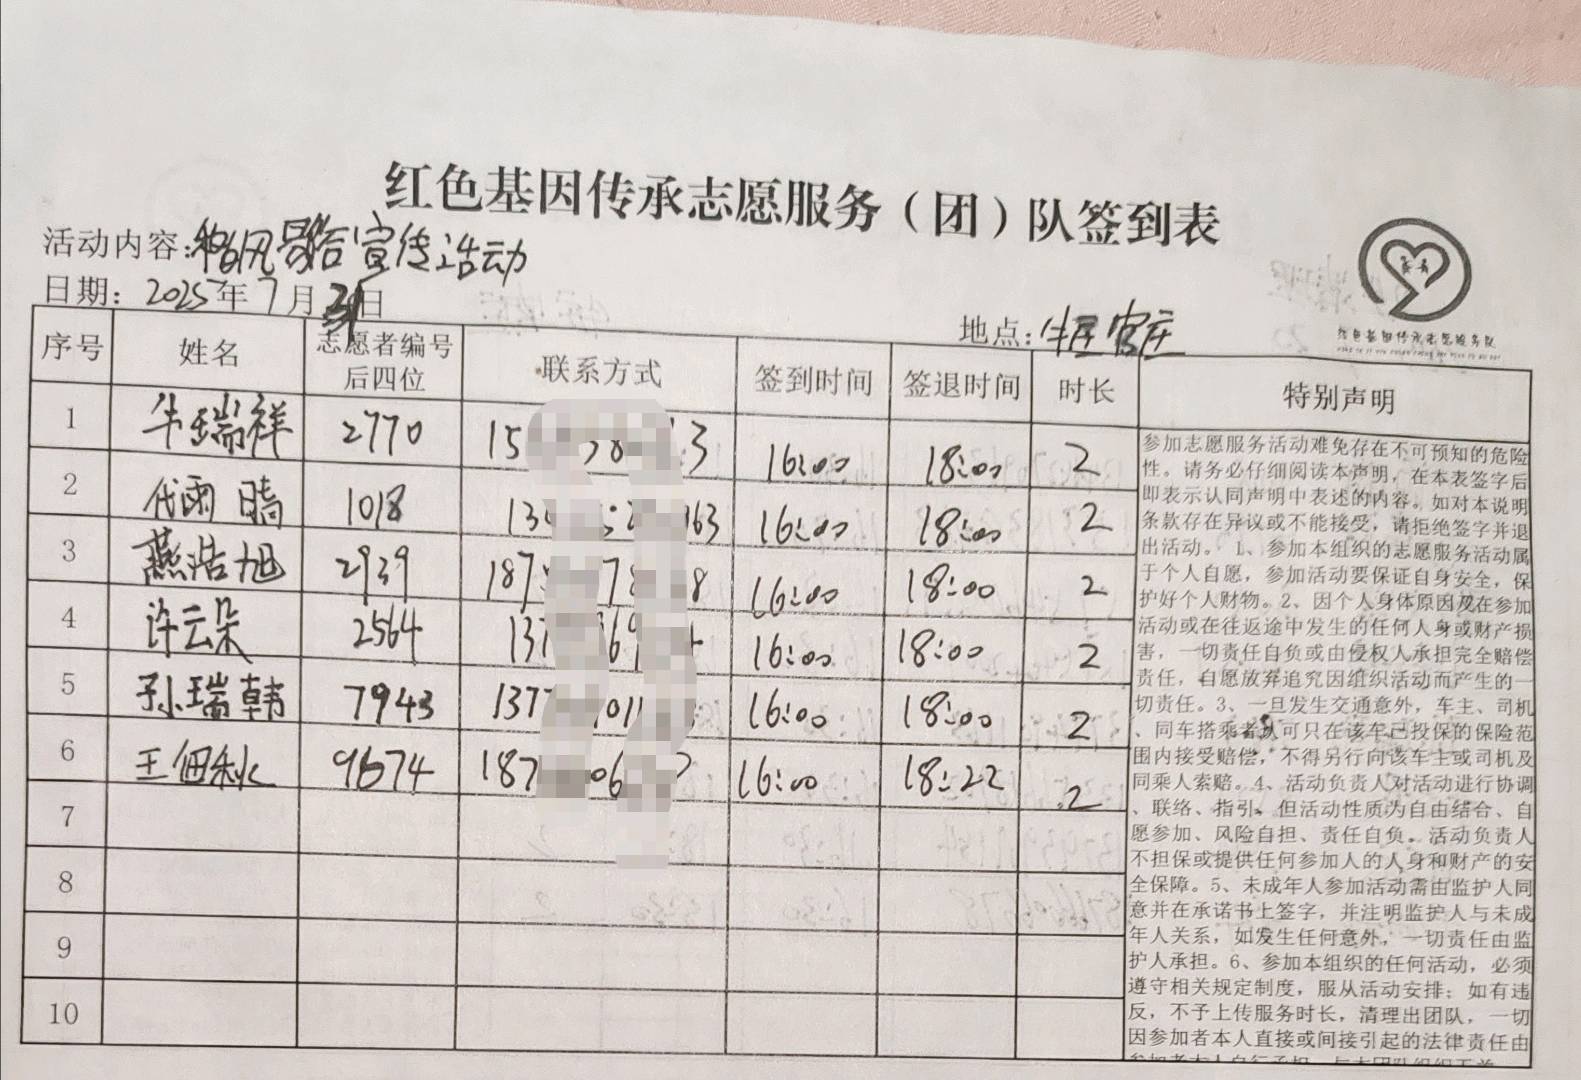 红色基因传承志愿服务（团）队签到表
活动内容：宣传活动
日期：2025年7月日
地点：官庄
红色基因传承志愿服务队
序号 姓名 志愿者编号后四位 联系方式 签到时间 签退时间 时长 特别声明
1 牛瑞祥 2770 15 38 3 16:00 18:00 2
2 代雨晴 1018 13 63 16:00 18:00 2
3 燕浩旭 2939 187 78 8 16:00 18:00 2
4 许云朵 2564 137 69 16:00 18:00 2
5 孙瑞韩 7943 137 01 16:00 18:00 2
6 王佃秋 9674 187 06 16:00 18:22 2
7
8
9
10
参加志愿服务活动难免存在不可预知的危险
性。请务必仔细阅读本声明，在本表签字后
即表示认同声明中表述的内容。如对本说明
条款存在异议或不能接受，请拒绝签字并退
出活动。1、参加本组织的志愿服务活动属
于个人自愿，参加活动要保证自身安全，保
护好个人财物。2、因个人身体原因及在参加
活动或在往返途中发生的任何人身或财产损
害，一切责任自负或由侵权人承担完全赔偿
责任，自愿放弃追究因组织活动而产生的一
切责任。3、一旦发生交通意外，车主、司机
、同车搭乘者认可只在该车已投保的保险范
围内接受赔偿，不得另行向该车主或司机及
同乘人索赔。4、活动负责人对活动进行协调
、联络、指引。但活动性质为自由结合、自
愿参加、风险自担、责任自负。活动负责人
不担保或提供任何参加人的人身和财产的安
全保障。5、未成年人参加活动需由监护人同
意并在承诺书上签字，并注明监护人与未成
年人关系，如发生任何意外，一切责任由监
护人承担。6、参加本组织的任何活动，必须
遵守相关规定制度，服从活动安排；如有违
反，不予上传服务时长，清理出团队，一切
因参加者本人直接或间接引起的法律责任由